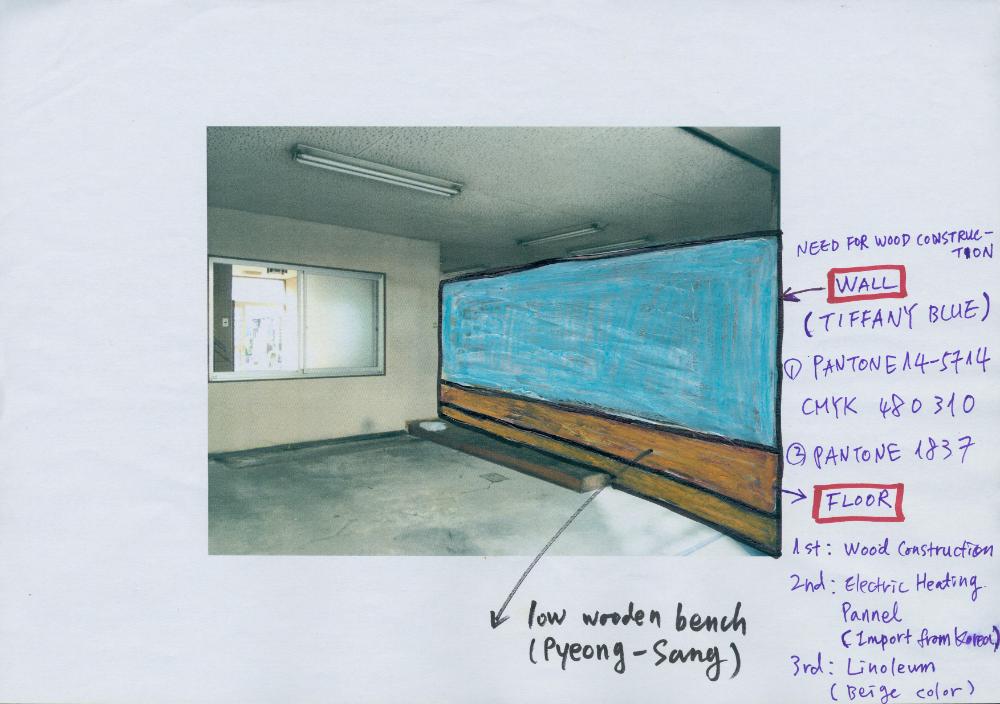 NEED FOR WOOD CONSTRUC-
TION
WALL
(TIFFANY BLUE)
① PANTONE 14-5714
CMYK 480310
② PANTONE 1837
FLOOR
1st: Wood Construction
2nd: Electric Heating
Pannel
(Import from Korea)
3rd: Linoleum
(Beige color)
low wooden bench
(Pyeong-Sang)